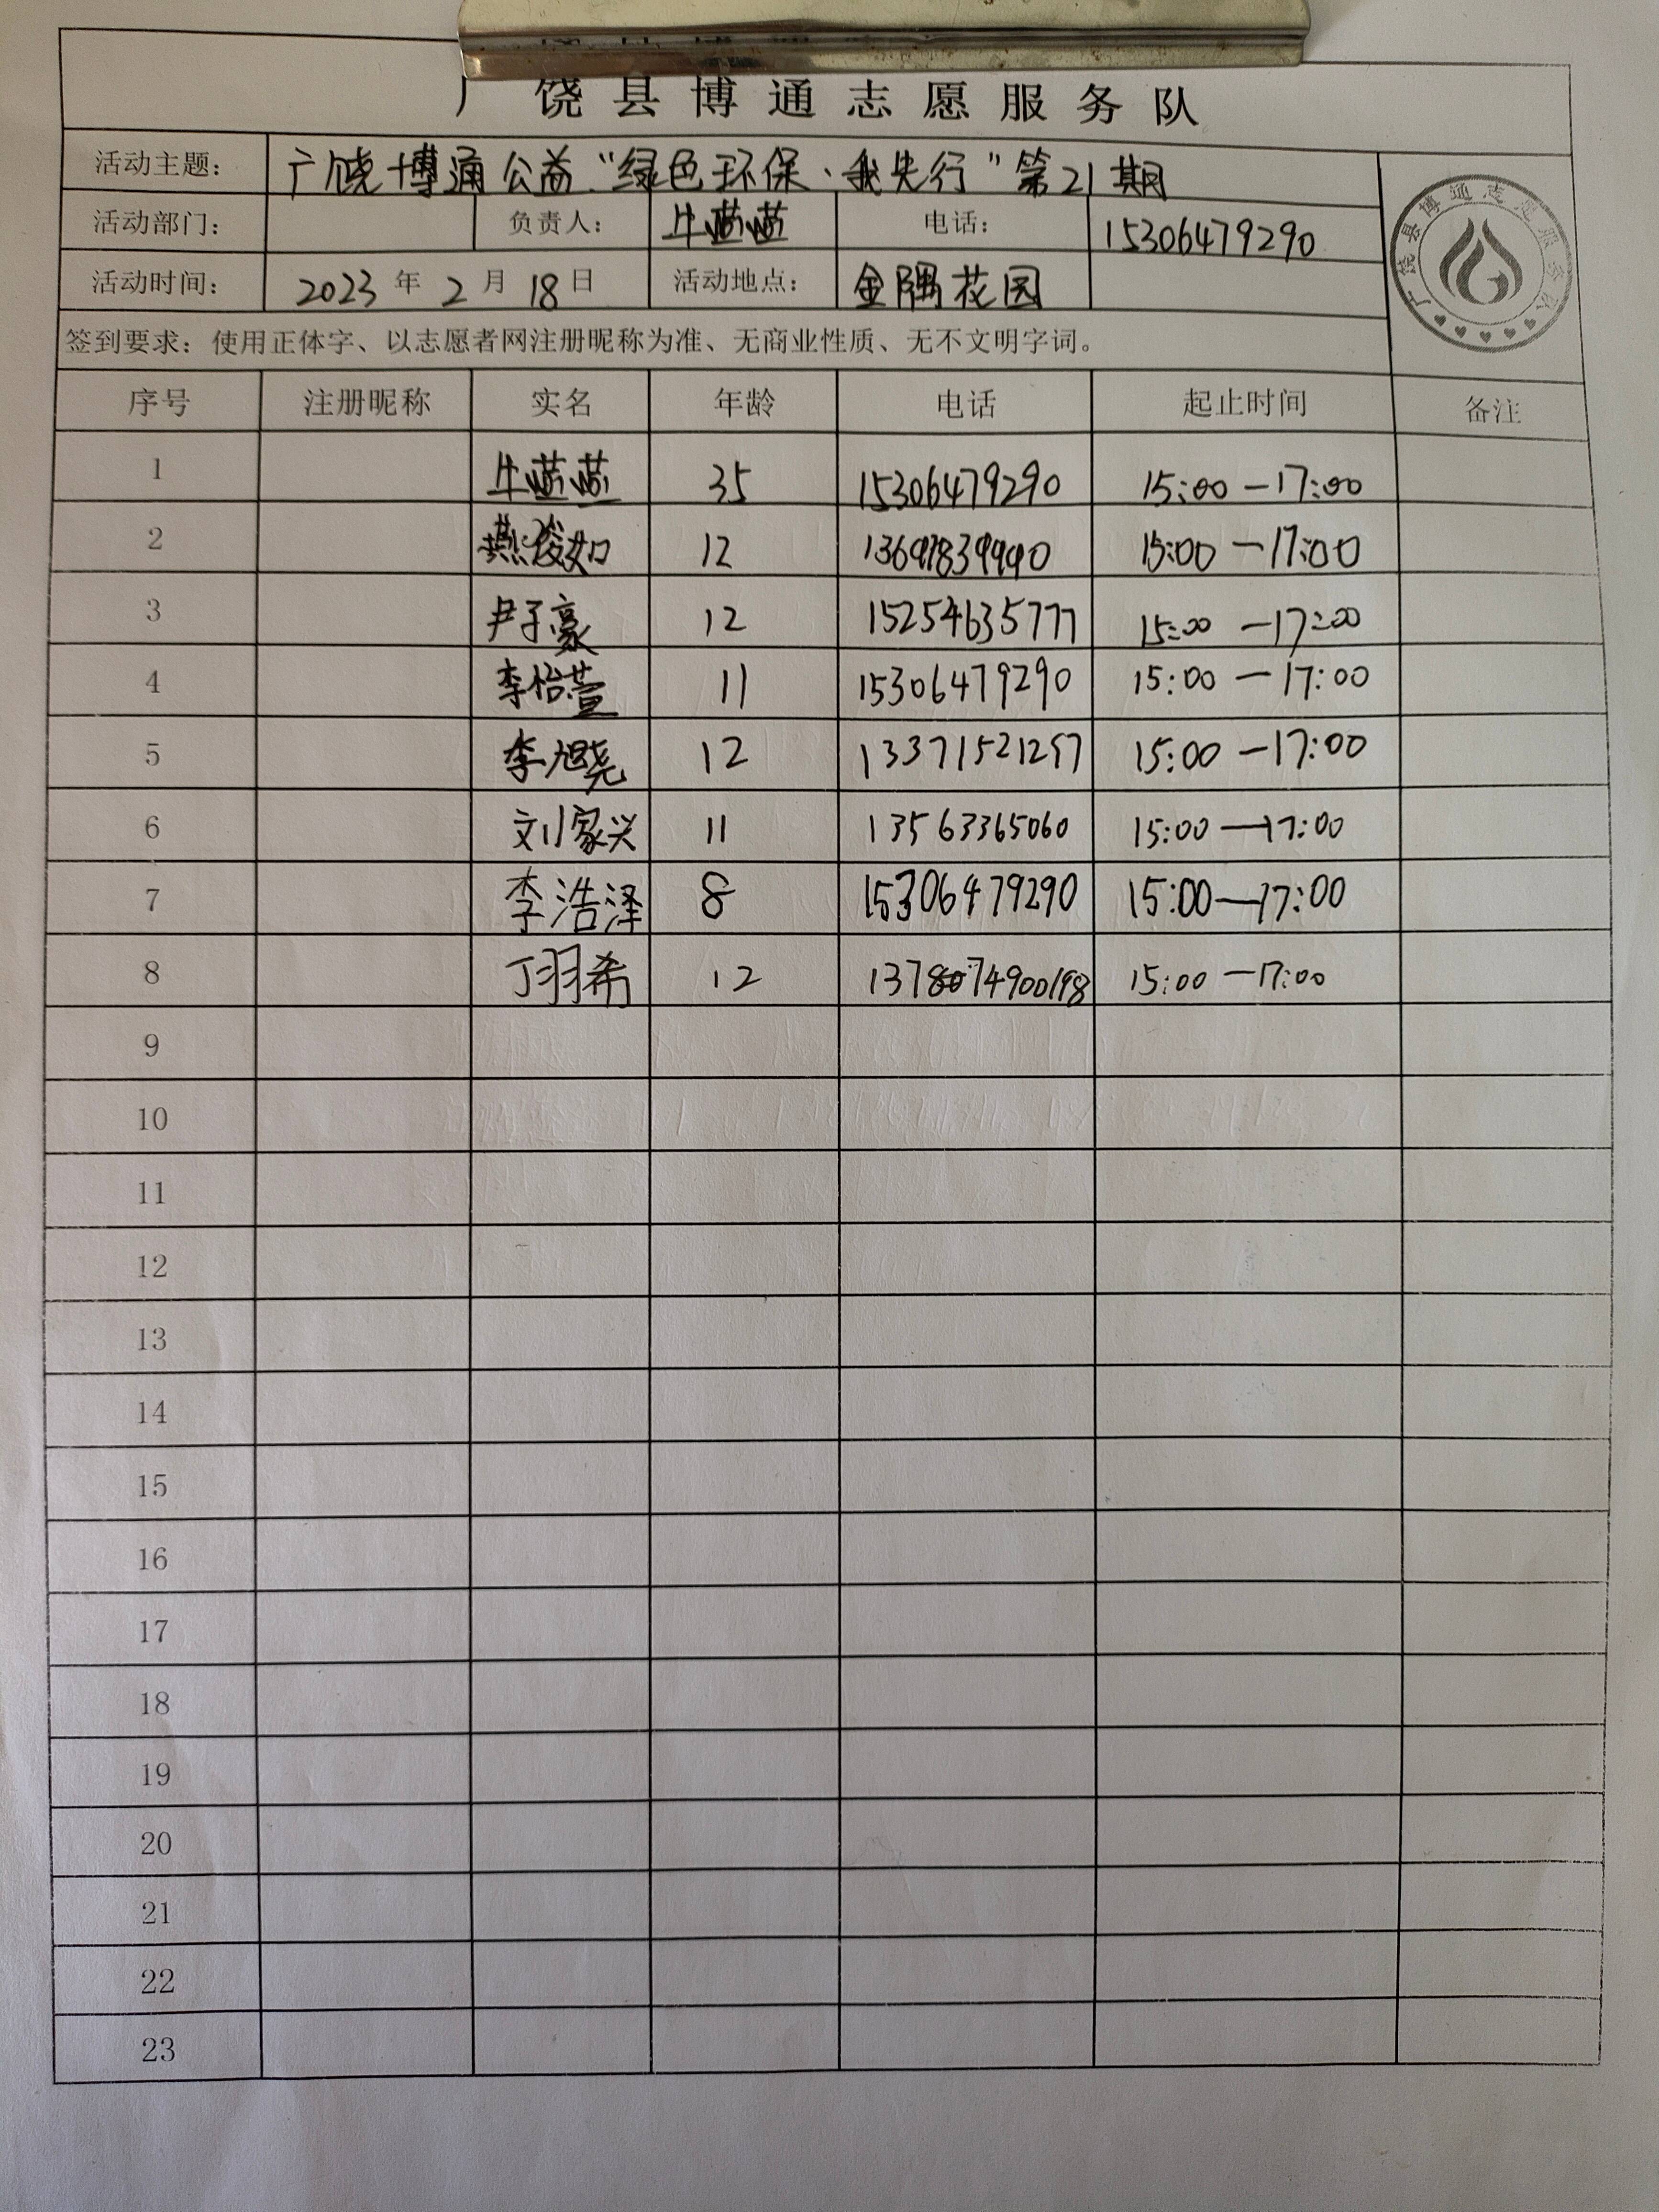 广饶县博通志愿服务队
活动主题： 广饶博通公益“绿色环保、我先行”第21期
活动部门： 负责人： 牛蓝蓝 电话： 15306479290
活动时间： 2023年2月18日 活动地点： 金隅花园
广饶县博通志愿服务队
签到要求：使用正体字、以志愿者网注册昵称为准、无商业性质、无不文明字词。
序号 注册昵称 实名 年龄 电话 起止时间 备注
1 牛蓝蓝 35 15306479290 15:00—17:00
2 燕俊如 12 15:00—17:00
3 尹子豪 12 15254635777 15:00—17:00
4 李怡萱 11 15306479290 15:00—17:00
5 李旭尧 12 13371521257 15:00—17:00
6 刘家兴 11 13563365060 15:00—17:00
7 李浩泽 8 15306479290 15:00—17:00
8 丁羽希 12 15:00—17:00
9
10
11
12
13
14
15
16
17
18
19
20
21
22
23